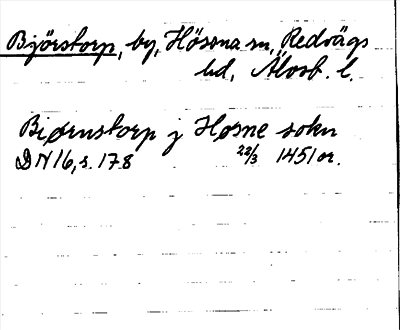 Björstorp, by, Hössna sn, Redvägs
hd, Älvsb. l.
Bjørnstorp j Høsne sokn
DN 16, s. 178 22/3 1451 or.